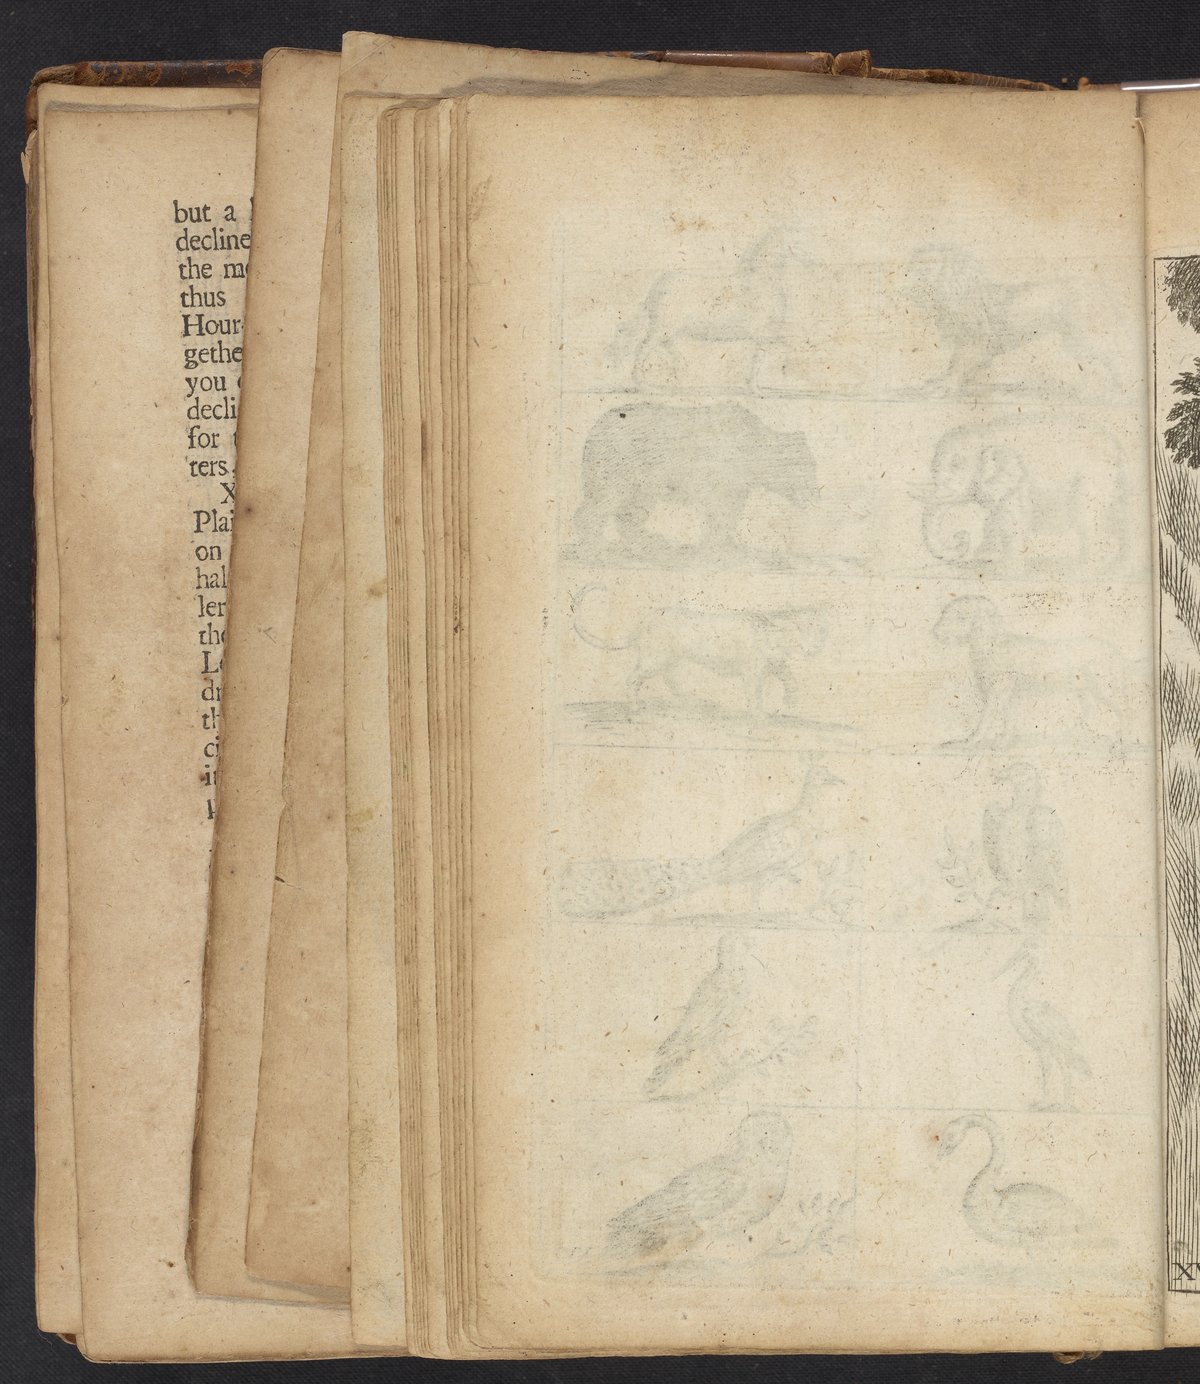 but a
decline
the mo
thus
Hour-
gethe
you
decli
for t
ters.
X
Plai
on
hal
ler
the
Lo
dr
th
ci
it
p
XV